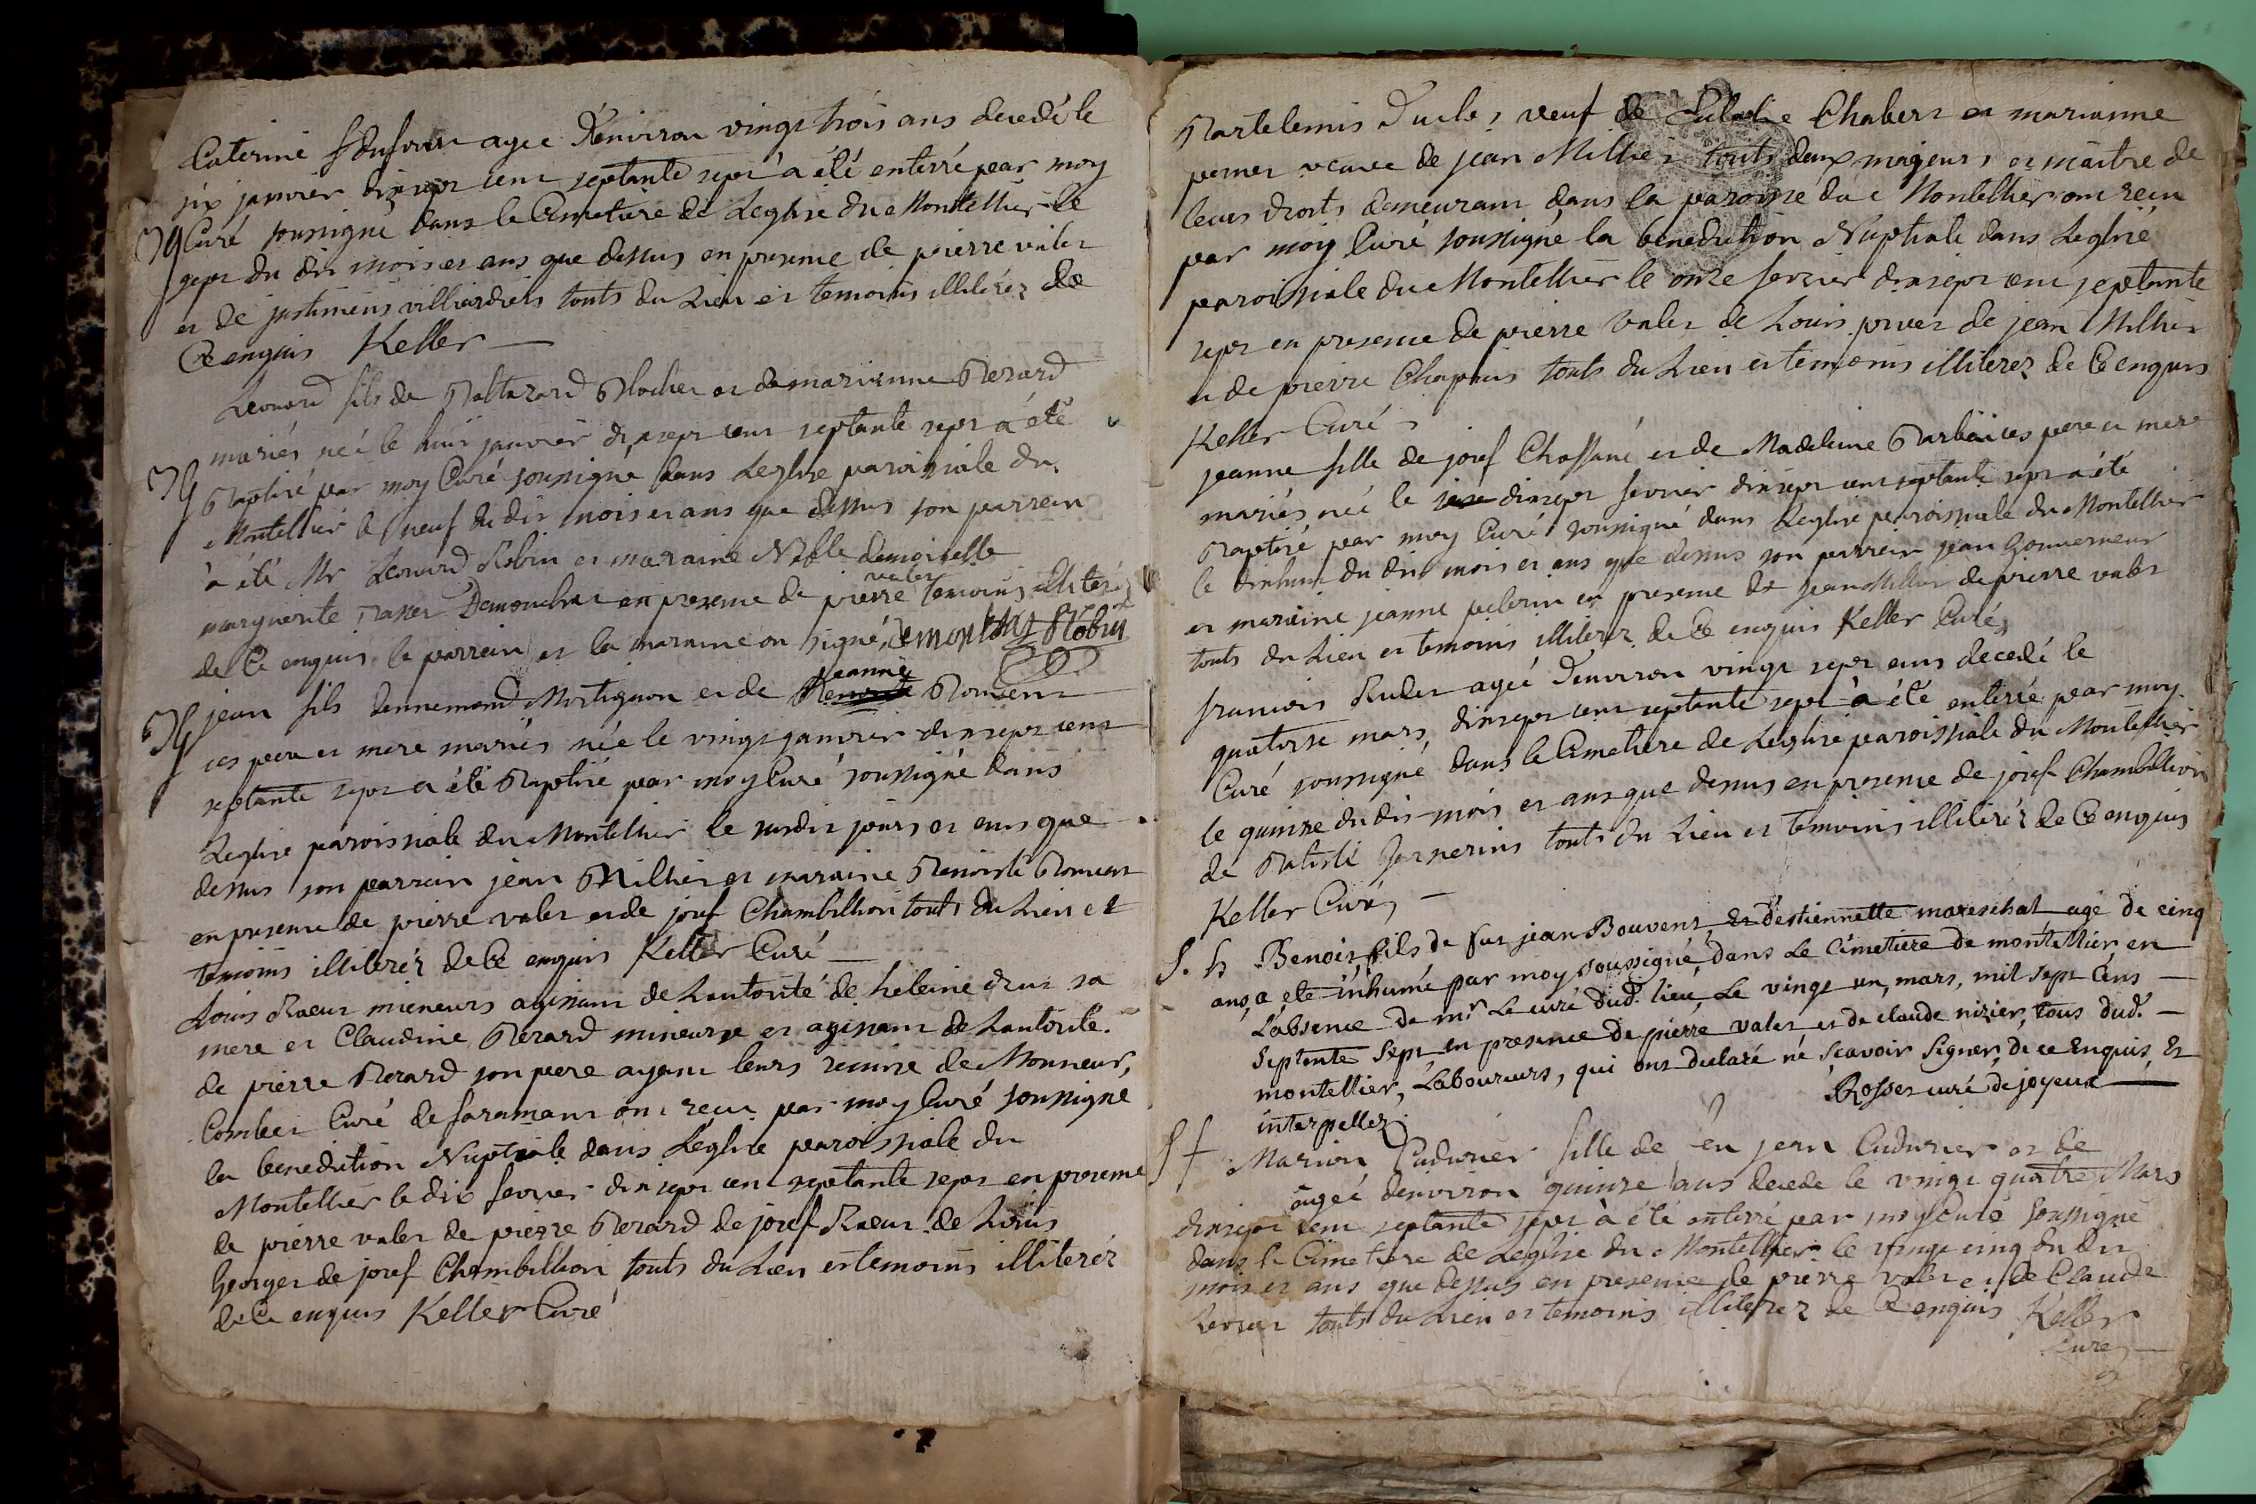 Caterine agee d'environ vingt trois ans decedé le
six janvier dixsept cent septante sept a été enterré par moy
Curé soussigné dans le Cimetiere de Leglise du Montellier le
sept du dit mois et ans que dessus en presence de pierre valet
et de justiniens villiardiers touts du Lieu et temoins illiterez de
Ce enquis Keller
Leonard fils de Baltazard Blochet et de marianne Berard
mariés neé le huit janvier dixsept cent septante sept a été
Baptisé par moy Curé soussigné dans Leglise paroissiale du
Montellier le neuf du dit mois et ans que dessus son parrein
a été Mr Leonard Robin et maraine Noble demoiselle
marguerite Demonchat en presence de pierre valet temoins illiterez
de Ce enquis le parrein et la maraine on signé Demontchat Robin
jean fils dennemond Mortignon et de jeanne Bouvent
ces pere et mere mariés née le vingt janvier dixsept cent
septante sept a été Baptisé par moy Curé soussigné dans
Leglise paroissiale du Montellier le susdit jours et ans que
dessus son parrain jean Milliet et maraine Benoite Bouvent
en presence de pierre valet et de josef Chambillion touts du Lieu et
temoins illiterez de Ce enquis Keller Curé
Louis mineurs agissant de Lautorité de heleine sa
mere et Claudine Berard mineurre et agissant de Lautorité
de pierre Berard son pere ayant leurs remise de Monneur,
Combet Curé de faramant ont recu par moy Curé soussigné
la benediction Nuptiale dans Leglise paroissiale du
Montellier le dix fevrier dixsept cent septante sept en presence
de pierre valet de pierre Berard de josef de Louis
Georges de josef Chambillion touts du Lieu et temoins illiterez
de Ce enquis Keller Curé
Bartelemis veuf de Chabert et marianne
pernet veuve de jean Milliet touts deux majeurs et maitre de
leurs droits demeurant dans la paroisse du Montellier ont recu
par moy Curé soussigné la benediction Nuptiale dans Leglise
paroissiale du Montellier le onze fevrier dixsept cent septante
sept en presence de pierre valet de Louis de jean Milliet
et de pierre Chapuis touts du Lieu et temoins illiterez de Ce enquis
Keller Curé
jeanne fille de josef Chassané et de Madeleine ces pere et mere
mariés neé le dixsept fevrier dixsept cent septante sept a été
Baptisé par moy Curé soussigné dans Leglise paroissiale du Montellier
le dixhuit du dit mois et ans que dessus son parrein jean Gouverneur
et maraine jeanne pelerin en presence de jean Milliet de pierre valet
touts du Lieu et temoins illiterez de Ce enquis Keller Curé
francois agée d'environ vingt sept ans decedé le
quatorse mars dixsept cent septante sept a été enterré par moy
Curé soussigné dans le Cimetiere de Leglise paroissiale du Montellier
le quinze du dit mois et ans que dessus en presence de josef Chambillion
de Batiste touts du Lieu et temoins illiterez de Ce enquis
Keller Curé
S. h Benoit fils de fut jean Bouvent, et d'estiennette mareschal agé de cinq
ans, a eté inhumé par moy soussigné, dans Le Cimetiere de montellier en
L'absence de mr Le curé dud. lieu, Le vingt un, mars, mil sept cens
septente sept, en presence de pierre valet et de claude nizier, tous dud.
montellier, Laboureurs, qui ont declaré né scavoir signer, de ce enquis, et
interpellez. Rosset curé de joyeux
S f Marion Cudurier fille de feu jean Cudurier et de
augeé denviron quinze ans decede le vingt quatre Mars
dixsept cent septante sept à été enterré par moy Curé soussigné
dans le Cimetiere de Leglise du Montellier le vingt cinq du dit
mois et ans que dessus en presence de pierre valet et de Claude
touts du Lieu et temoins illiterez de Ce enquis Keller
Curé